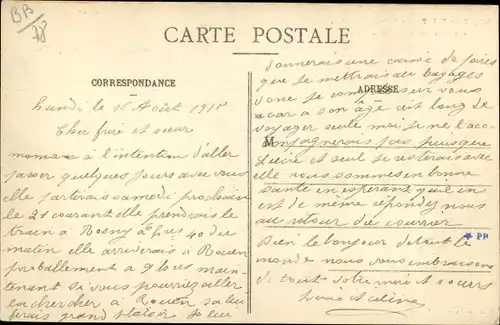 BB
78
CARTE POSTALE
CORRESPONDANCE
ADRESSE
Lundi le 16 Août 191
Cher frère et soeur
maman à l'intention d'aller
passer quelques jours avec vous
elle partirais samedi prochain
le 21 courant elle prendrais le
train a Rosny à 40 du
matin elle arriverais à Rouen
proballement a 9 main-
tenant si vous pourriez aller
la chercher a Rouen sa lui
ferais grand plaisir je leur
donnerais une caisse de poires
que je mettrais au bagages
donc je compte sur vous
car a son âge cit long de
voyager seule moi je ne l'acc
M
ompagnerais pas puisque
Lucie et seul je resterais avec
elle nous sommes en bonne
santé en esperant qu'il en
est de même répondez nous
au retour du courrier
Bien le bonjour de tout le
monde nous vous embrassons
de tout votre et soeurs
PH